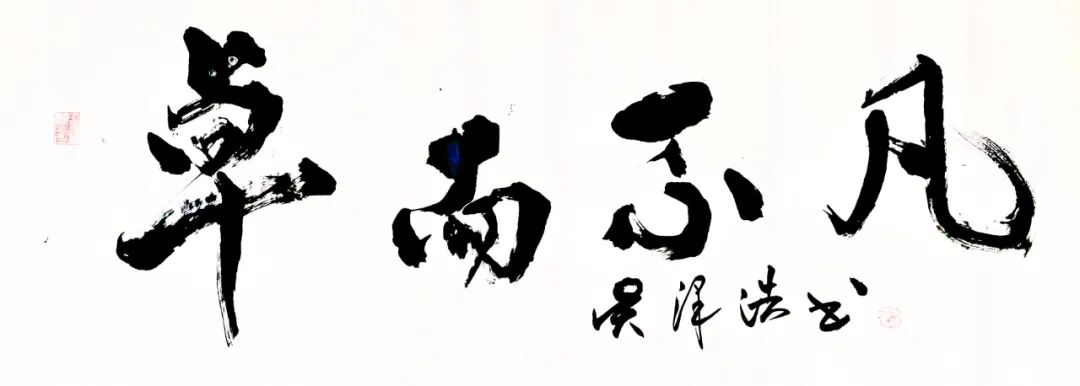 卓而不凡
吴泽浩书